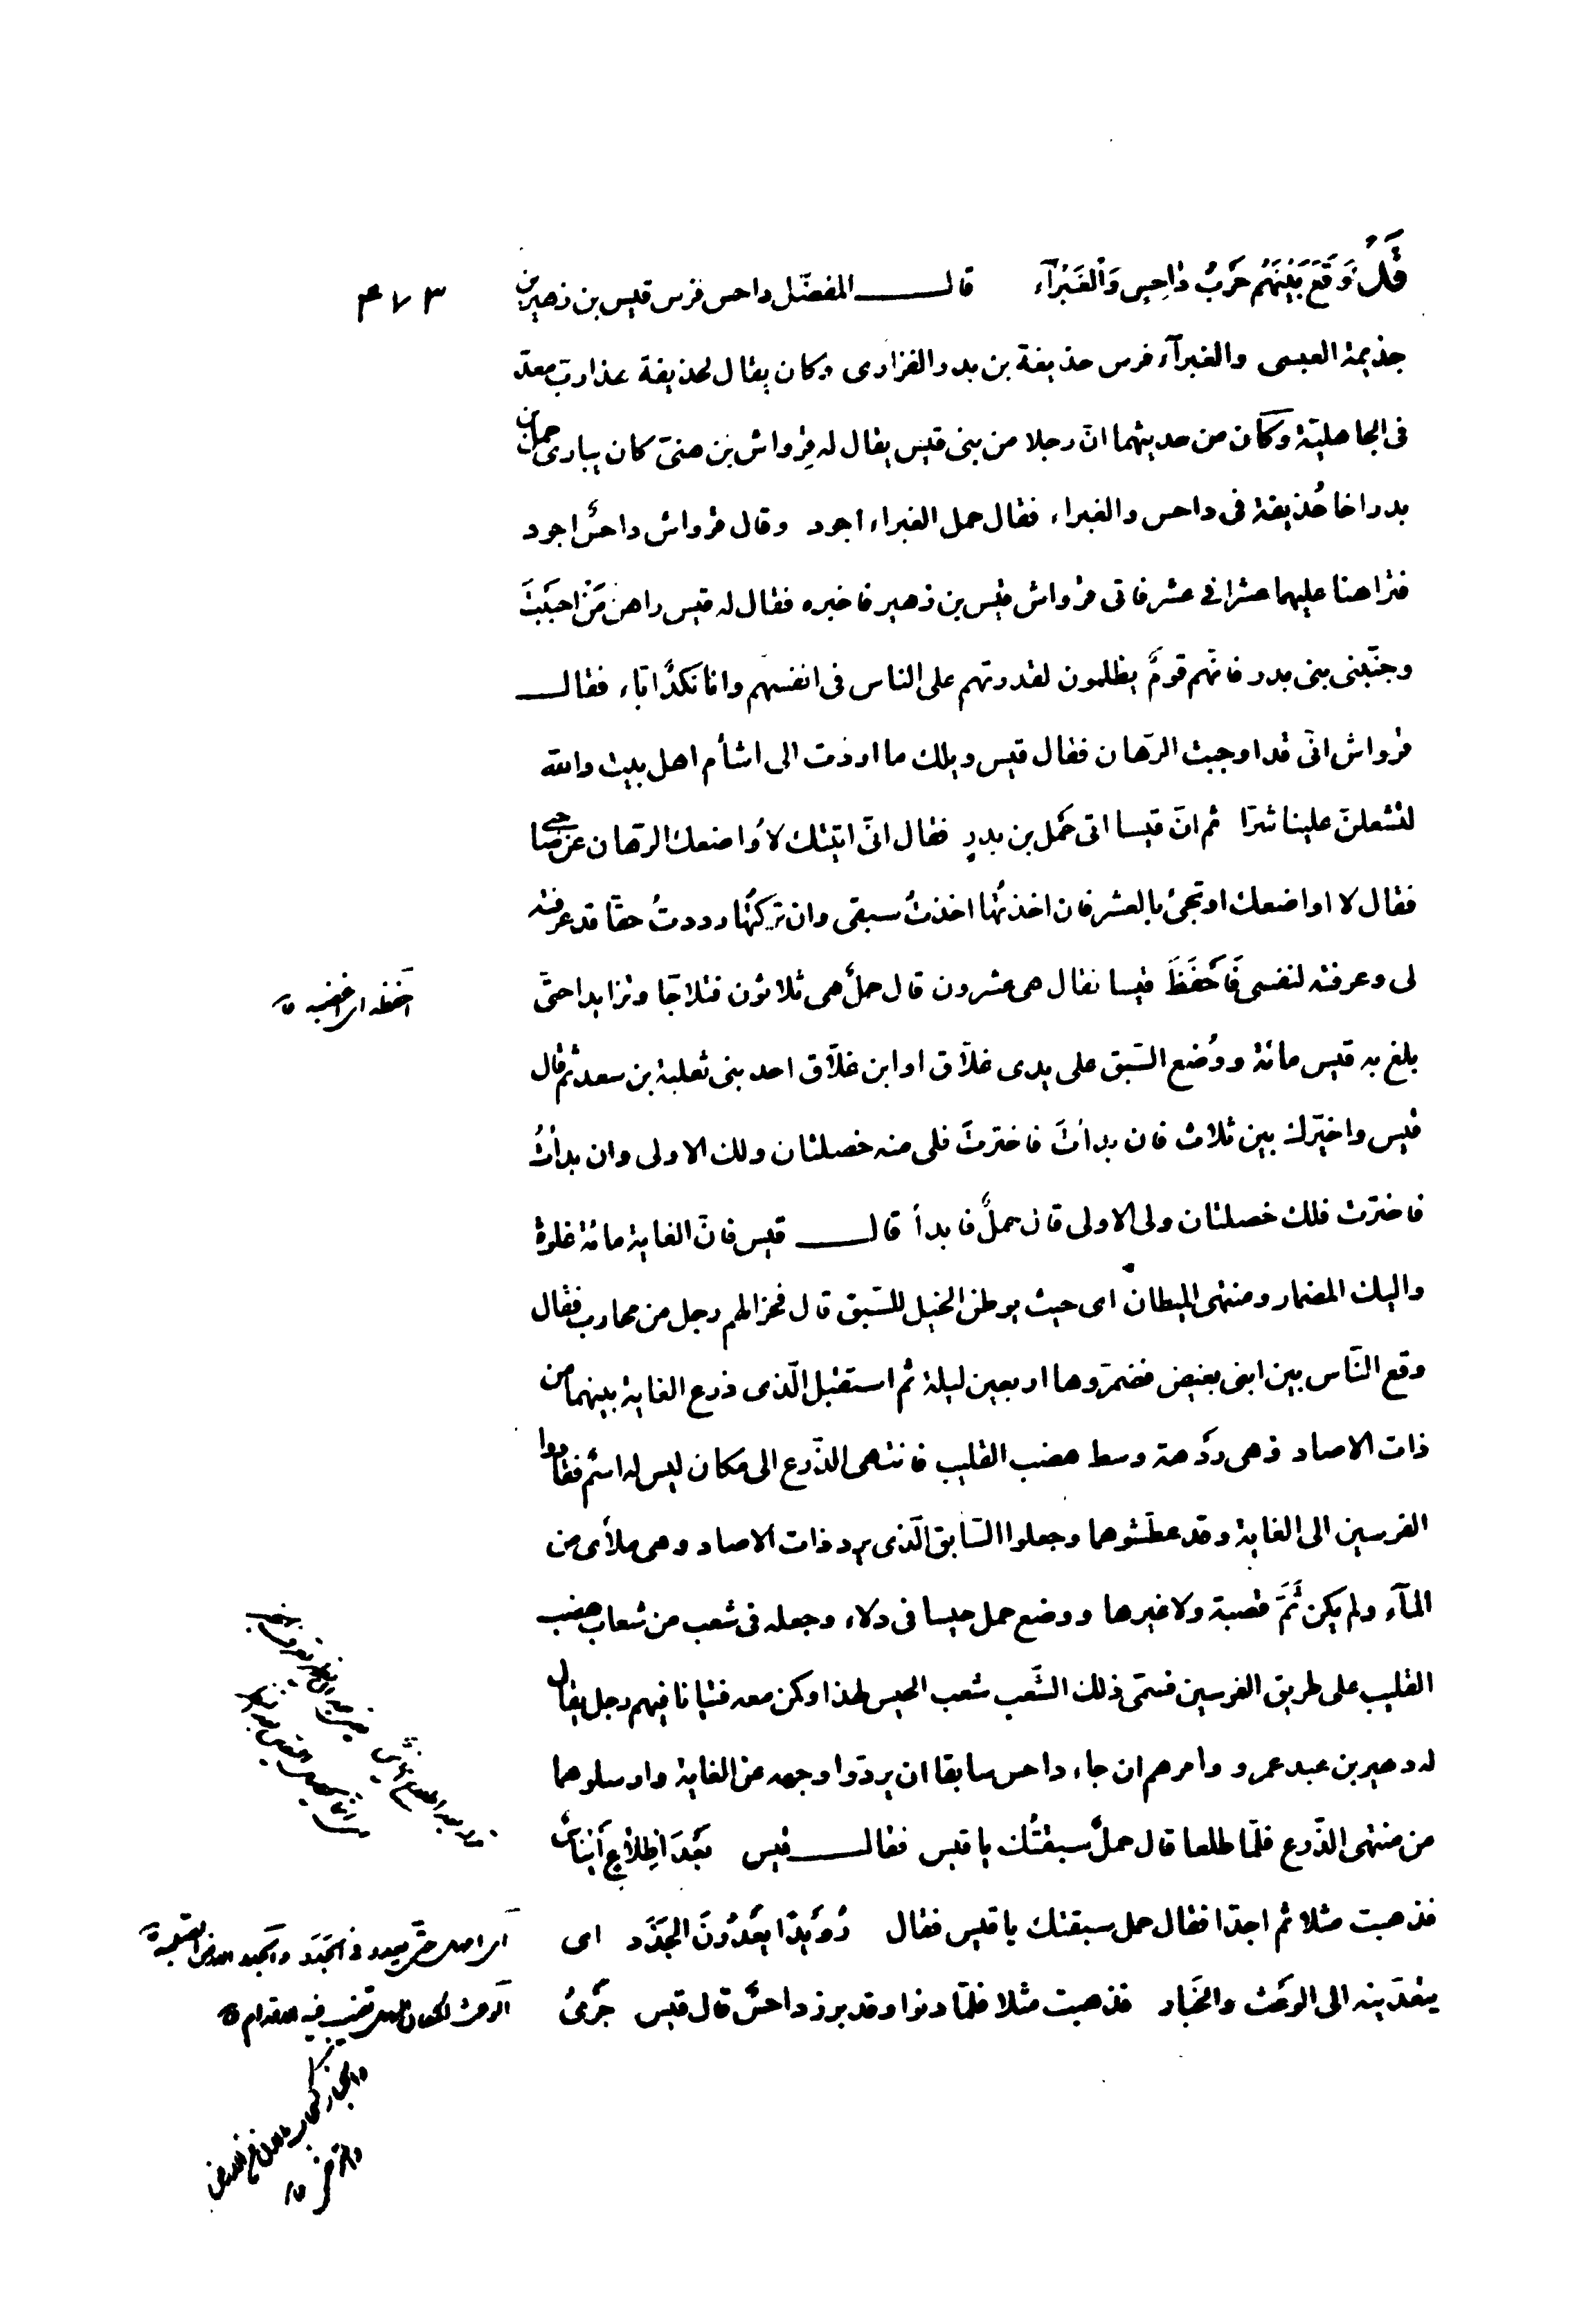 قَدْ وَقَعَ بَيْنَهُم حَرْبُ دٰاحِسٍ وَالْغَبْرٰآء قال المفضّل داحس فرس قيس بن زهير بن
٤٧٣
جذيمة العبسى والغبرآء فرس حذيفة بن بدر الفزارى وكان يقال لحذيفة هذا ربّ معدّ
فى الجاهليّة وكان من حديثهما انّ رجلا من بنى قيس يقال له قِرْواش بن هنىّ كان يبارى حمل بن
بدر اخا حُذيفة فى داحس والغبراء فقال حمل الغبراء اجود وقال قرواش داحسٌ اجود
فتراهنا عليهما عشرا فى عشر فاتى قرواش قيس بن زهير فاخبره فقال له قيس راهن مَنْ احبَبْتَ
وجنّبنى بنى بدر فانّهم قومٌ يظلمون لقدرتهم على الناس فى انفسهم وانا نكدٌ ابّاء فقال
قرواش انّى قد اوجبت الرّهان فقال قيس ويلك ما اردت الى اشأم اهل بيت والله
لتشعلنّ علينا شرّا ثم انّ قيسا اتى حَمَل بن بدرٍ فقال انّى اتيتك لاُواضعك الرّهان عن صاحبى
فقال لا اواضعك او تجئ بالعشر فان اخذتُها اخذتُ سبقى وان تركتُها رددتُ حقّا قد عرفته
لى وعرفته لنفسى فَاَحْفَظَ قيسا فقال هى عشرون قال حملٌ هى ثلاثون فتلاجّا وتزايدا حتّى
احفظه اى اغضبه
بلغ به قيس مائة ووُضع السّبق على يدى غلاّق او ابن غلاّق احد بنى ثعلبة بن سعد ثم قال
قيس واخيّرك بين ثلاث فان بدأتَ فاخترتَ فلى منه خصلتان ولك الاولى وان بدأتُ
فاخترت فلك خصلتان ولى الاولى قال حملٌ فابدأ قال قيس فانّ الغاية مائة غلوة
واليك المضمار ومنتهى الميطان اى حيث يوطن الخيل للسّبق قال فخر لهم رجل من محارب فقال
وقع النّاس بين ابنى بغيض فضمّروها اربعين ليلة ثم استقبل الّذى ذرع الغاية بينهما من
ذات الاصاد وهى ردْهة وسط هضب القليب فانتهى الذّرع الى مكان ليس له اسم فقادوا
الفرسين الى الغاية وقد عطّشوهما وجعلوا السّابق الّذى يرد ذات الاصاد وهى ملأى من
المآء ولم يكن ثَمَّ قصبة ولا غيرها ووضع حمل حيسا فى دلاء وجعله فى شعب من شعاب هضب
القليب على طريق الفرسين فسمّى ذلك الشّعب شعب الحيس لهذا وكمن معه فتيانا فيهم رجل يقال
له زهير بن عبد عمرو وامرهم ان جاء داحس سابقا ان يردّوا وجهه عن الغاية وارسلوهما
من منتهى الذّرع فلمّا طلعا قال حملٌ سبقتُك يا قيس فقال قيس بَعْدَ اطِّلاٰعٍ اٖينٰاسٌ
فذهبت مثلا ثم اجدّا فقال حمل سبقتك يا قيس فقال رُوَيْدًا يَعْدُوٰنَ الجَدَد اى
اى امهل حتّى يعدو فى الجَدَد والجدد الارض الصلبة
يتعدّينه الى الوعَث والخَبار فذهبت مثلا فلمّا دنوا وقد برز داحسٌ قال قيس جَرْىُ
الوعث المكان السهل تغيب فيه الاقدام